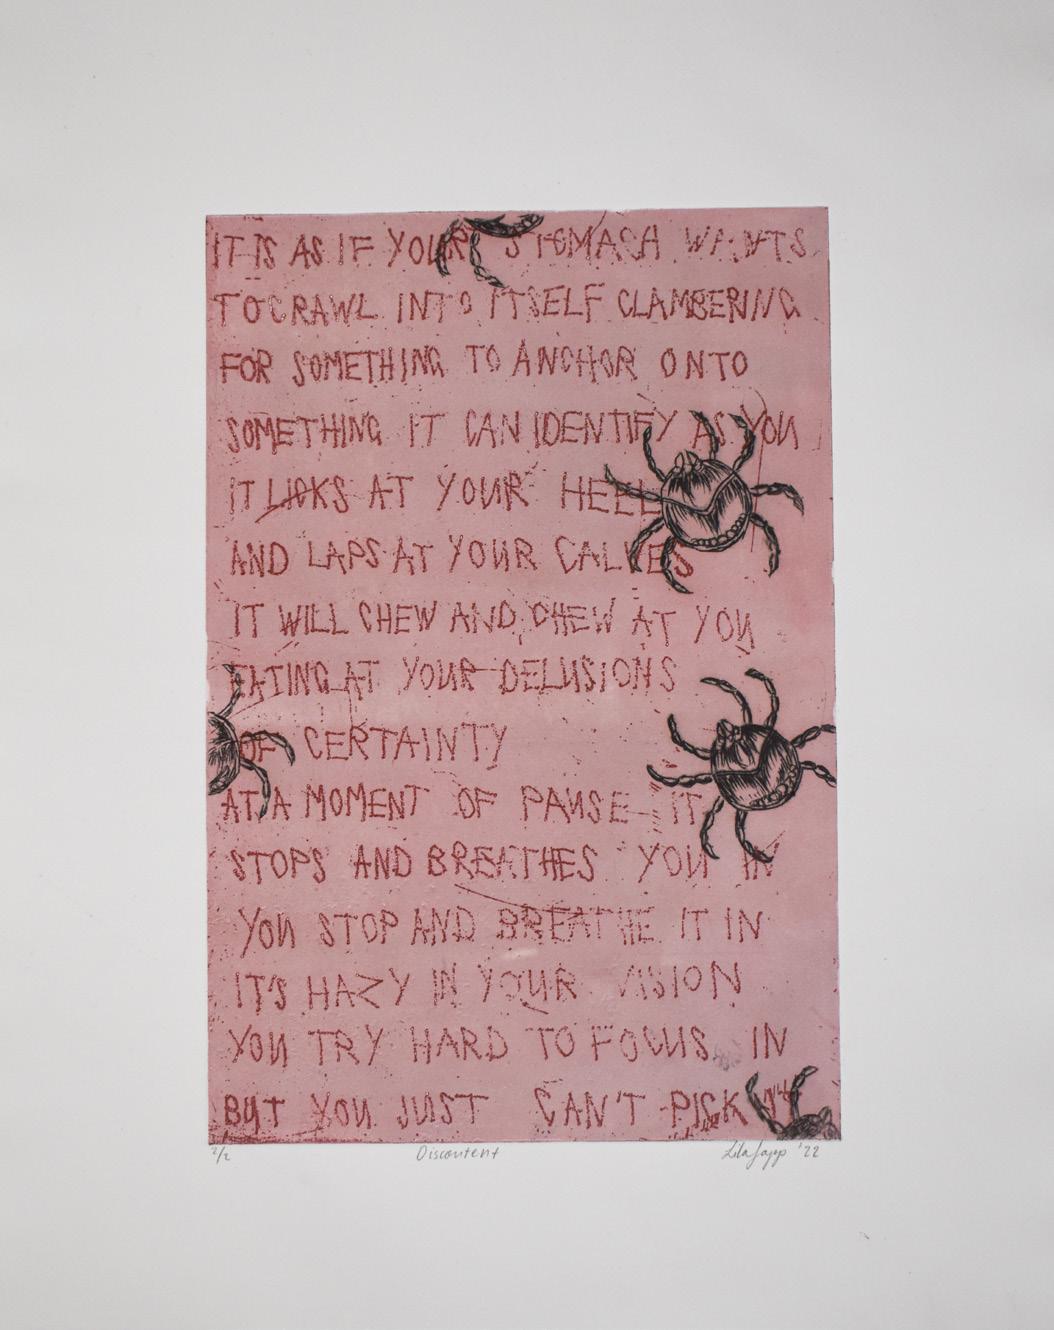 IT IS AS IF YOUR STOMACH WANTS
TO CRAWL INTO ITSELF CLAMBERING
FOR SOMETHING TO ANCHOR ONTO
SOMETHING IT CAN IDENTIFY AS YOU
IT LICKS AT YOUR HEEL
AND LAPS AT YOUR CALVES
IT WILL CHEW AND CHEW AT YOU
EATING AT YOUR DELUSIONS
OF CERTAINTY
AT A MOMENT OF PAUSE IT
STOPS AND BREATHES YOU IN
YOU STOP AND BREATHE IT IN
IT'S HAZY IN YOUR VISION
YOU TRY HARD TO FOCUS IN
BUT YOU JUST CAN'T PICK IT
2/2 Discontent Lila '22